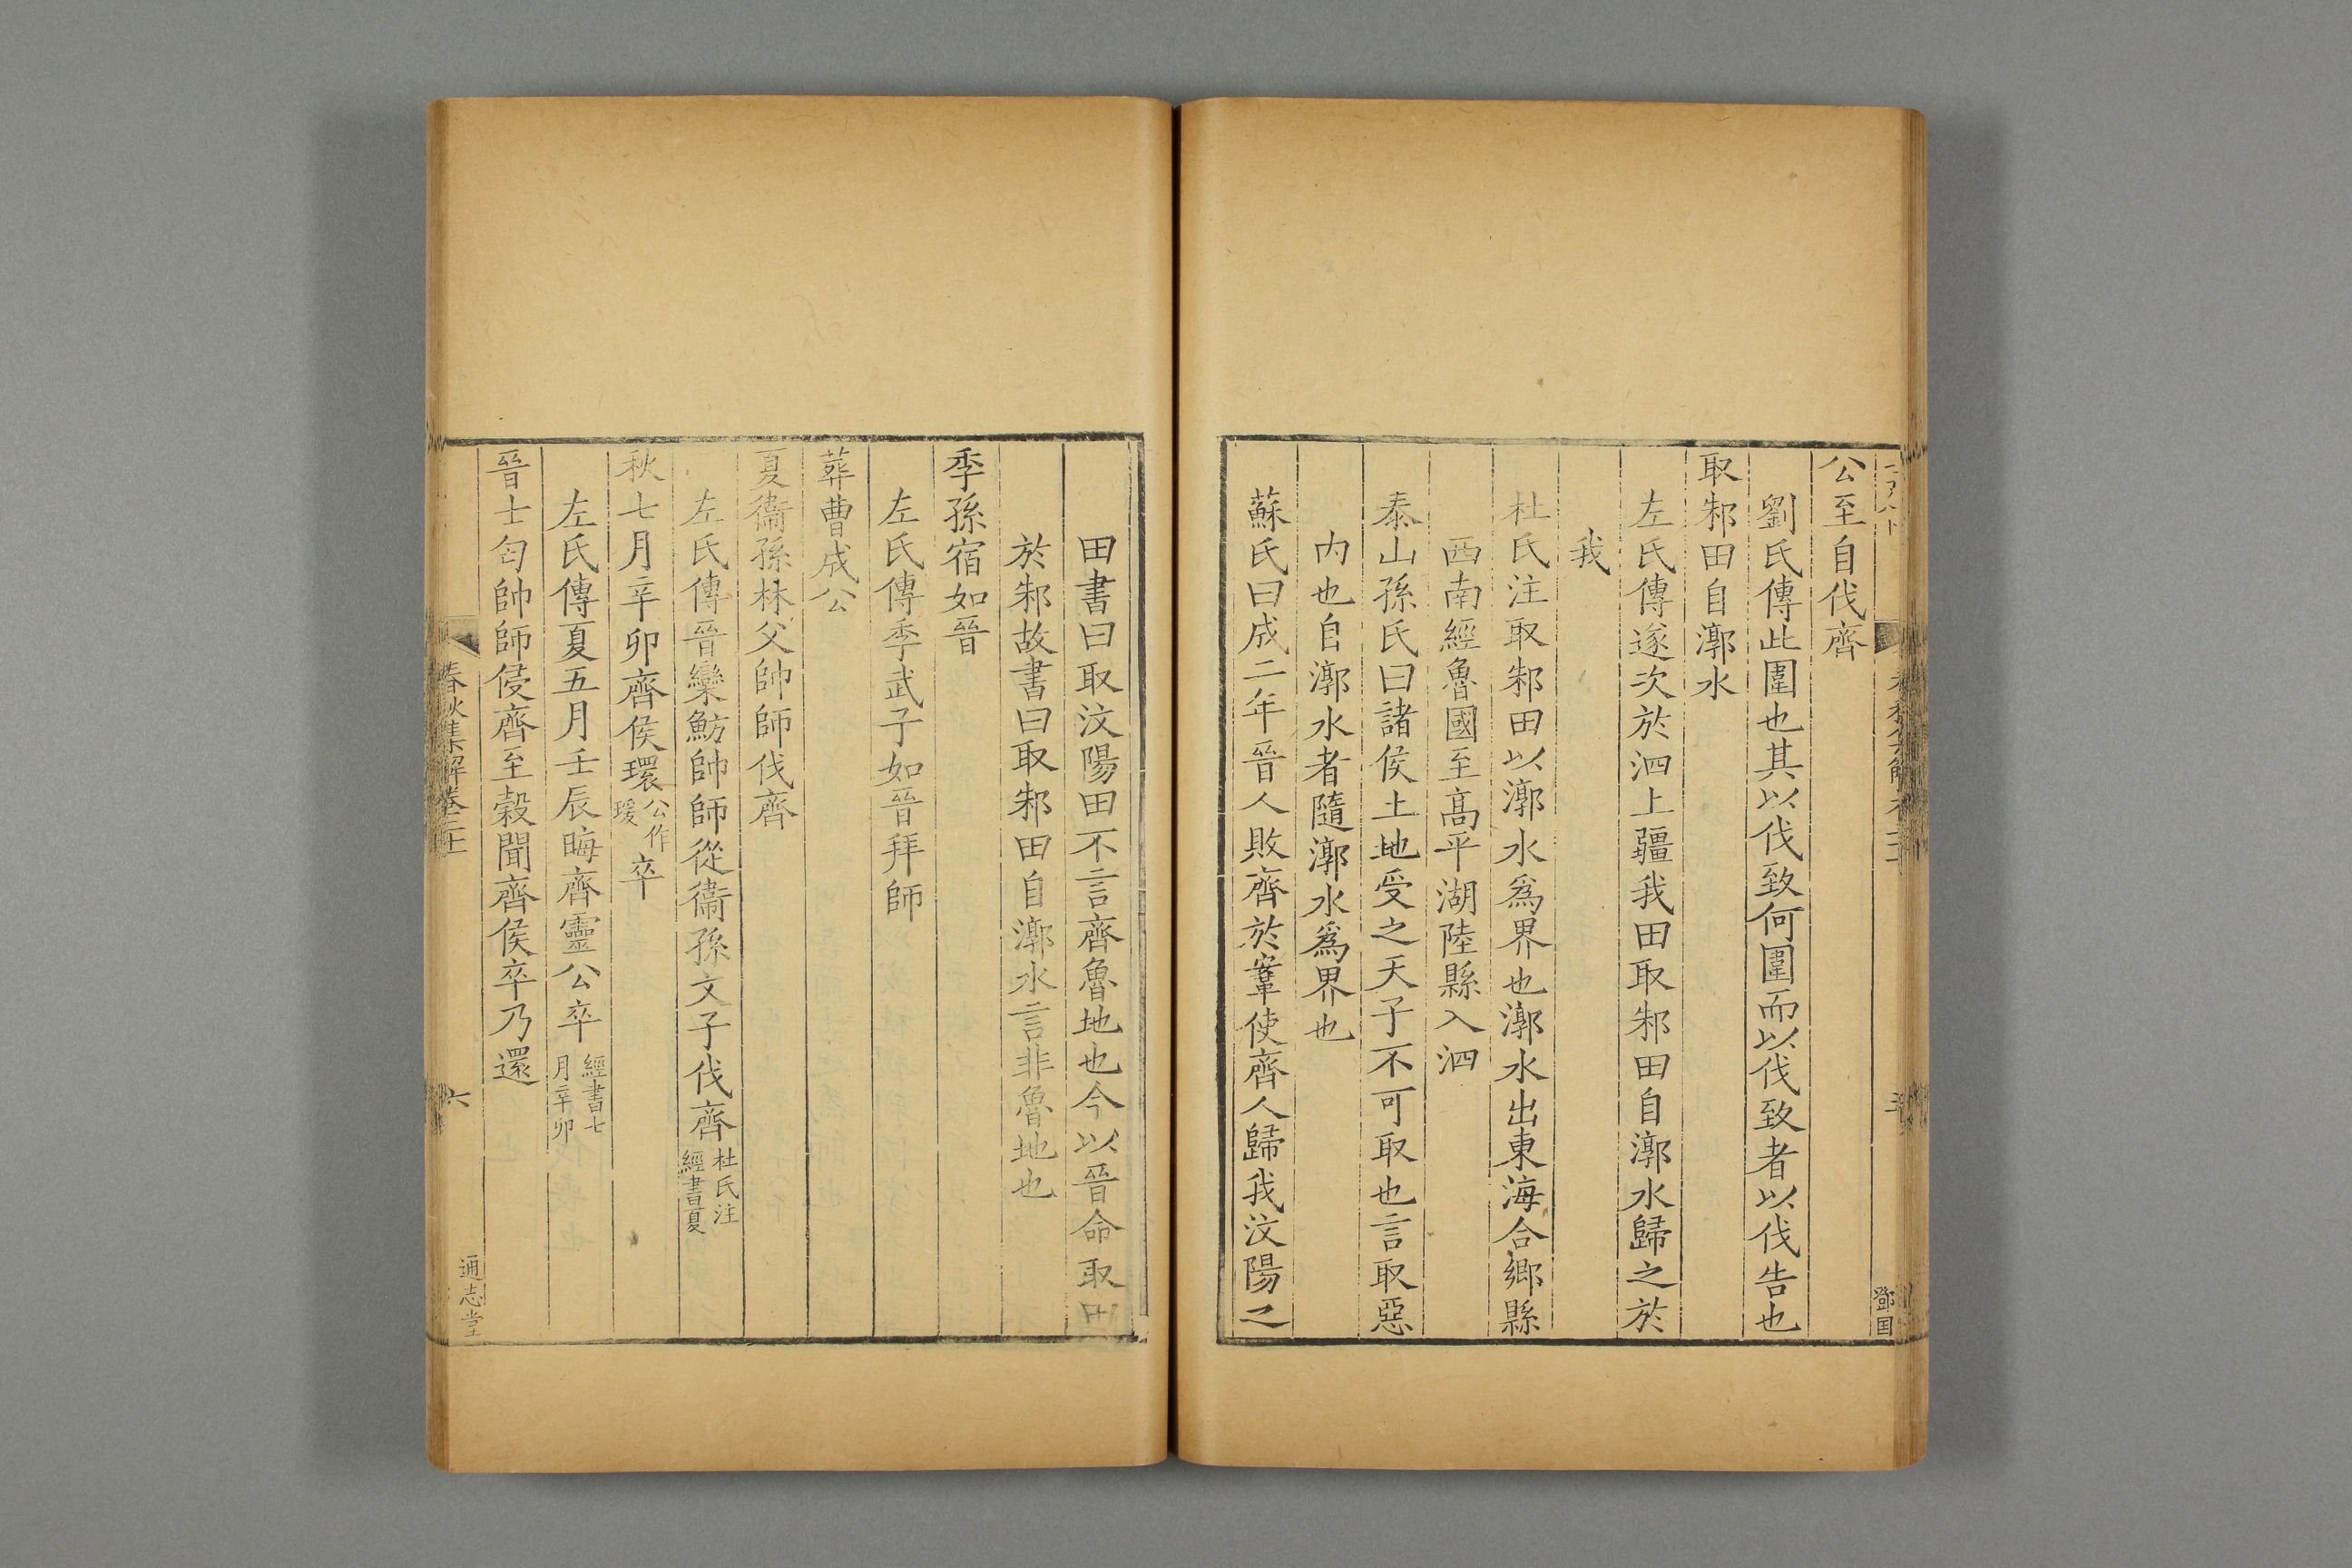 公至自伐齊
劉氏傳此圍也其以伐致何圍而以伐致者以伐告也
取邾田自漷水
左氏傳遂次於泗上疆我田取邾田自漷水歸之於
我
杜氏注取邾田以漷水爲界也漷水出東海合鄉縣
西南經魯國至高平湖陸縣入泗
泰山孫氏曰諸侯土地受之天子不可取也言取惡
内也自漷水者隨漷水爲界也
蘇氏曰成二年晉人敗齊於鞌使齊人歸我汶陽之
田書曰取汶陽田不言齊魯地也今以晉命取田
於邾故書曰取邾田自漷水言非魯地也
季孫宿如晉
左氏傳季武子如晉拜師
葬曹成公
夏衞孫林父帥師伐齊
左氏傳晉欒魴帥師從衞孫文子伐齊杜氏注經書夏
秋七月辛卯齊侯環公作瑗卒
左氏傳夏五月壬辰晦齊靈公卒經書七月辛卯
晉士匄帥師侵齊至穀聞齊侯卒乃還
春秋集解卷二十
六
通志堂